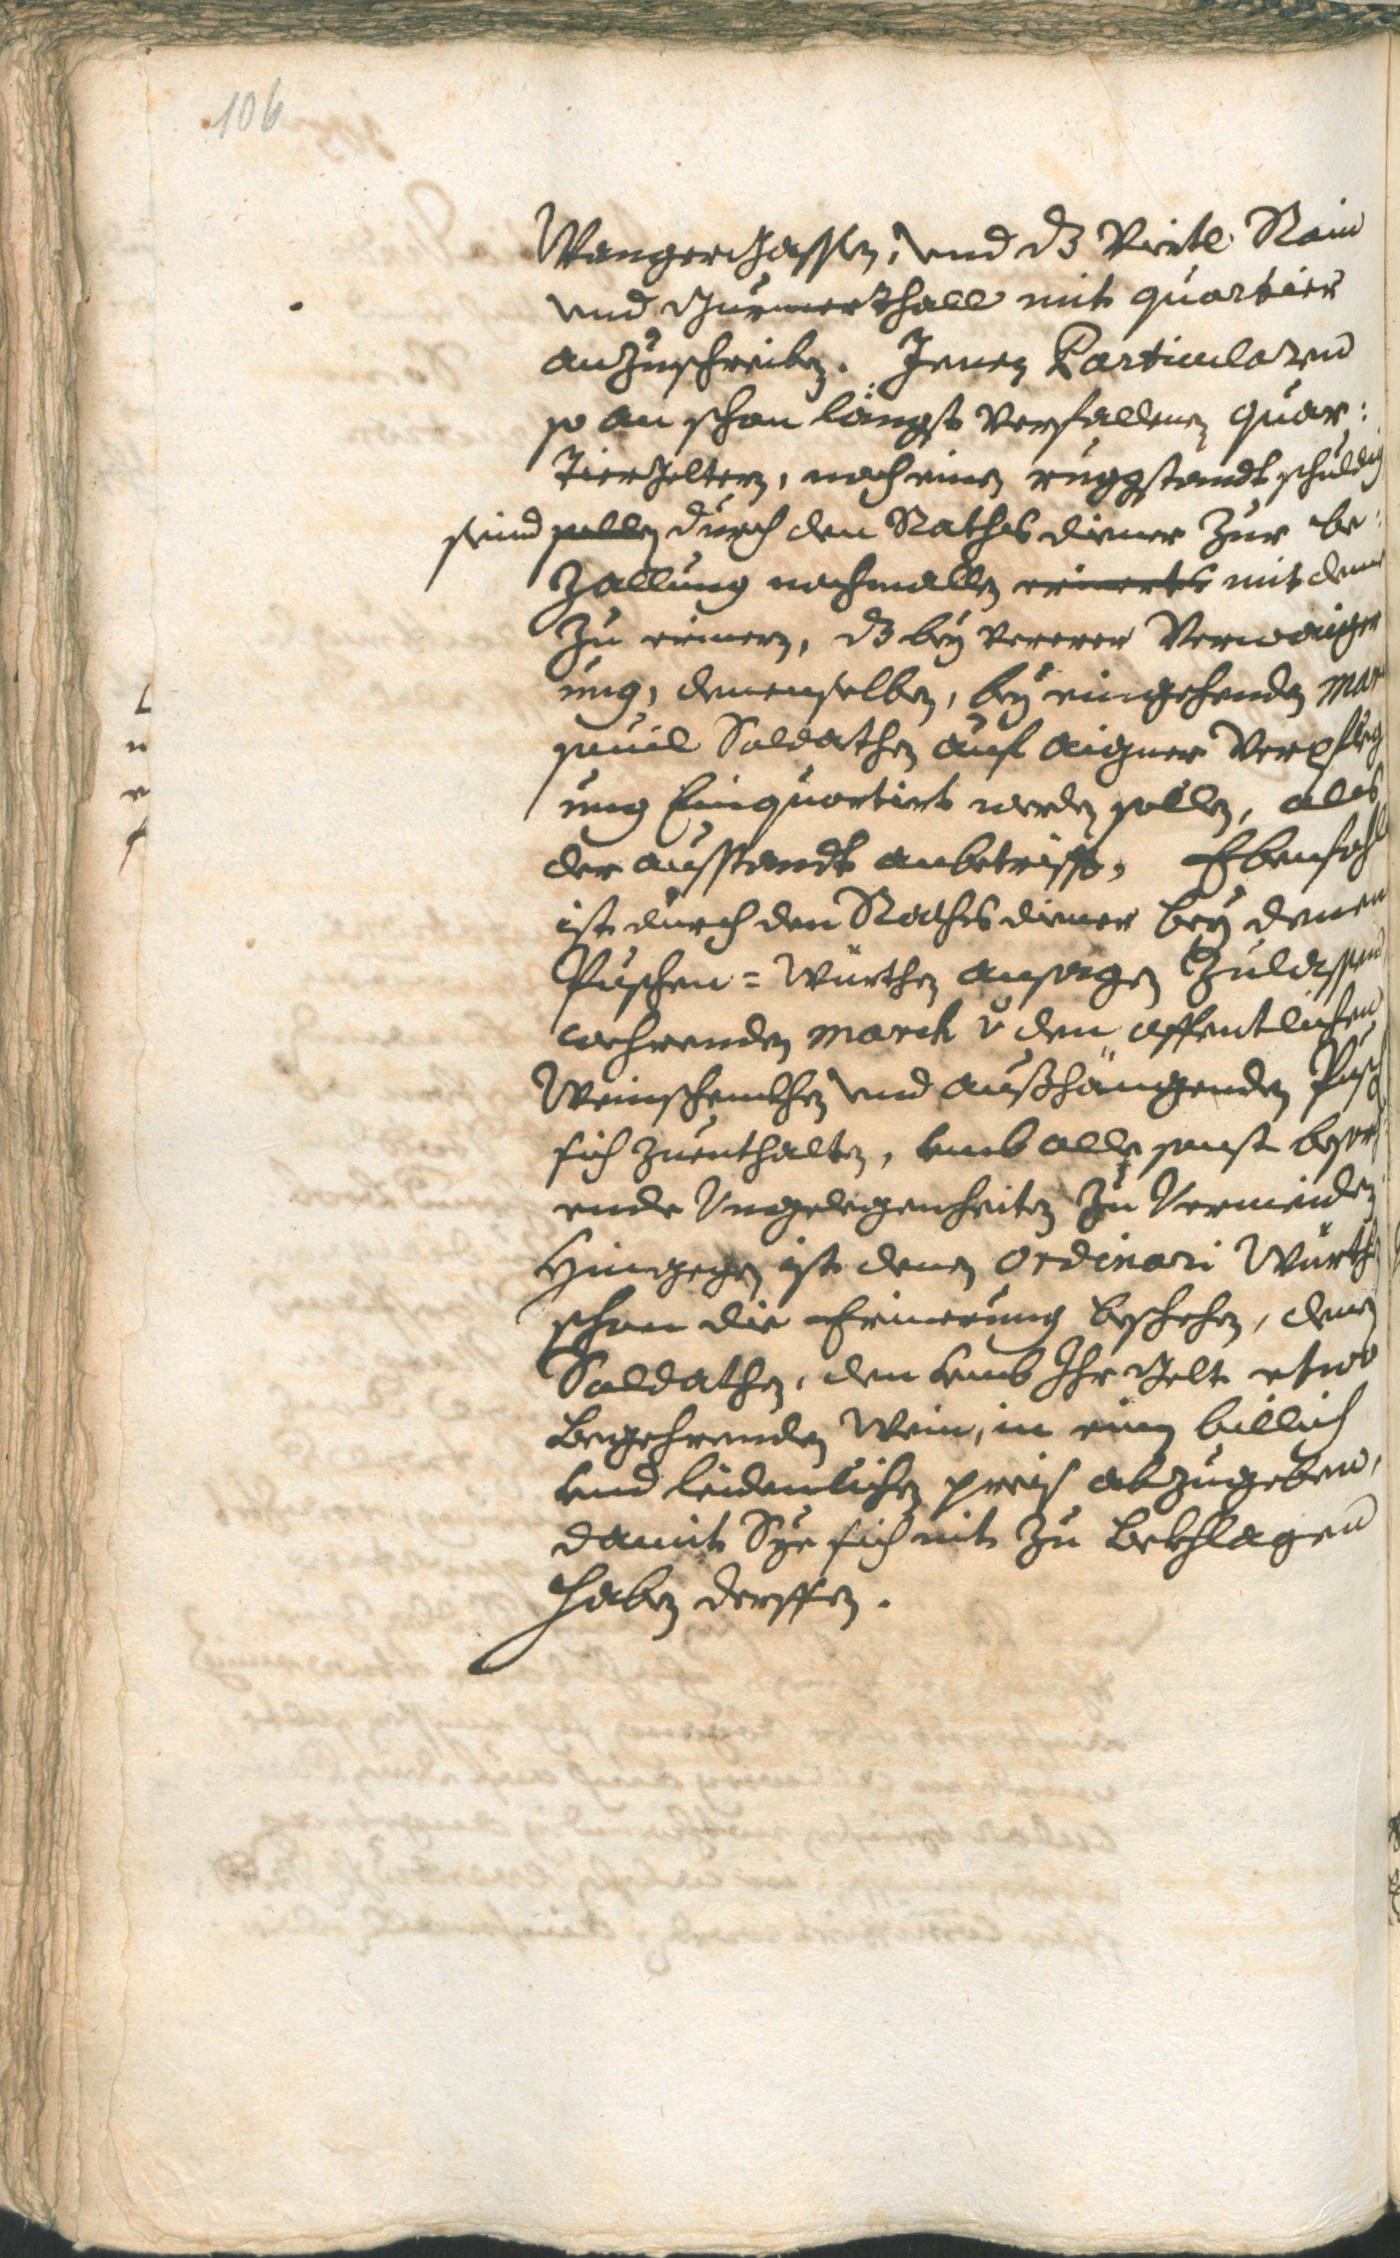 106
Wangergassen, und dz Viertl Rain
und Sarnerthall mit quartier
anzuschreiben. Jenen Particularen
so an schon längst verfallenen quar:
tiergeltern, noch einen ruggstandt schuldig
seind sollen durch den Raths diener zur be:
zallung nochmallen erinerts mit deme
zu erinern, dz bey ferrer Verwaiger
ung, denenselben, bey eingehenden mar
souil Soldathen auf aigner Verpfleg
ung Einquortiert werden sollen, alls
der ausstandt anbetrifft, Ebenfahls
ist durch den Raths diener bey denen
Puschen = Würthen ansagen zulassen
wehrenden march v̈ den offentlichen
Weinschenkhen und außhängenden Pusch
sich zuenthalten, umb alle sonst besor
ende Ungelegenheiten zu Vermeiden
Hingegen ist denen ordinari Würth
schon die Erinerung beschehen, denen
Soldathen, den umb Ihr Gelt etwo
begehrenden Wein, in einen billich
und leidenlichen preis abzugeben,
damit Sye sich nit zu bekhlagen
haben derffen.